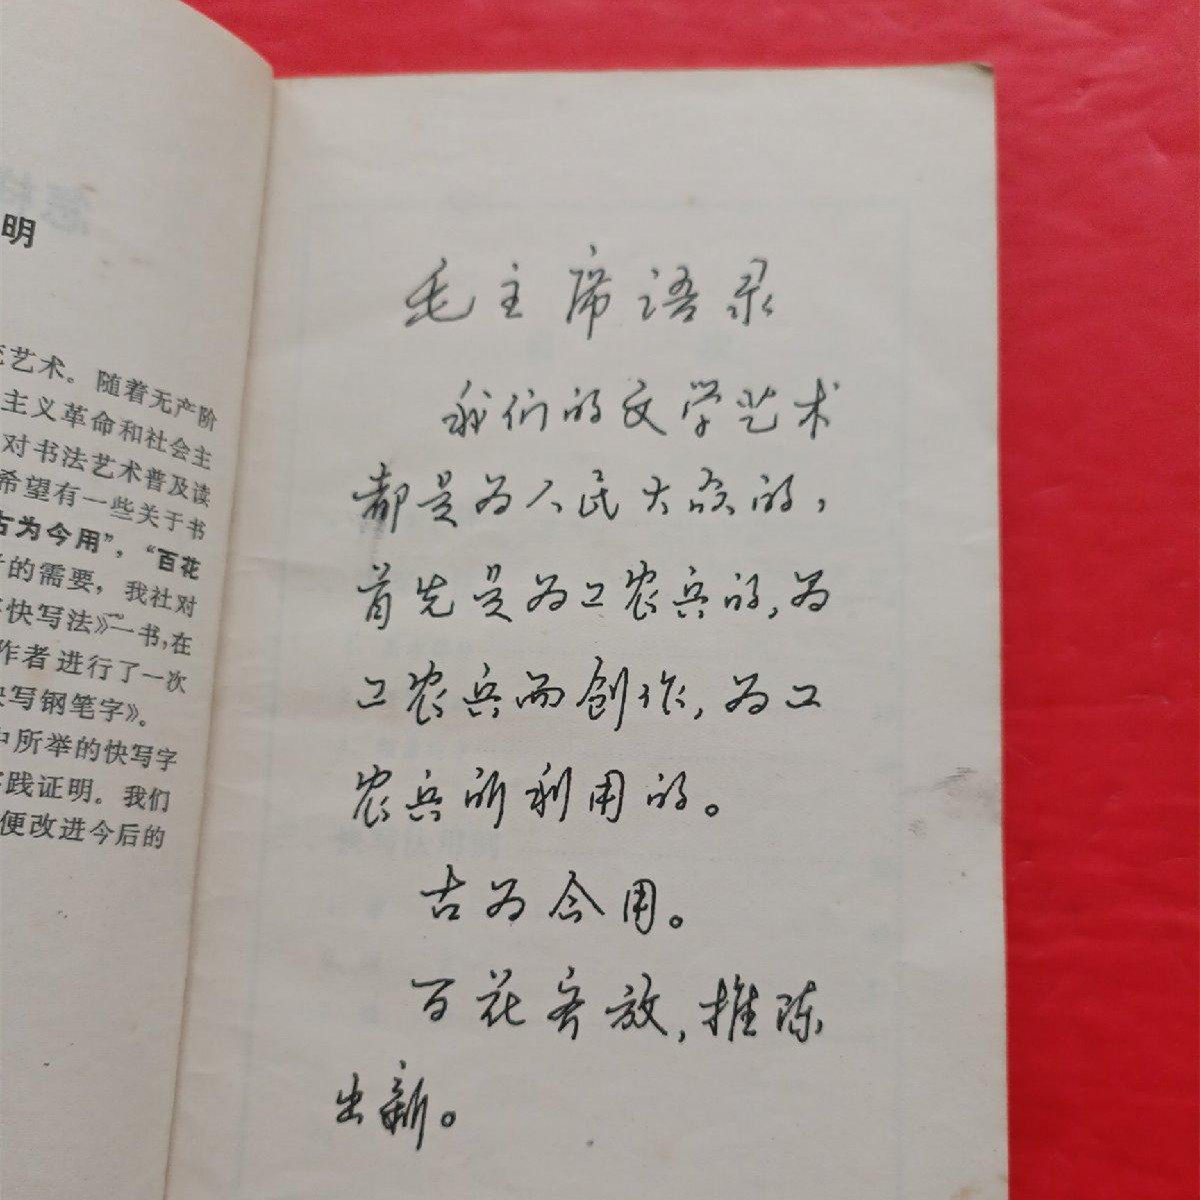 明
艺术。随着无产阶
主义革命和社会主
对书法艺术普及读
希望有一些关于书
古为今用”，“百花
的需要，我社对
快写法》一书，在
作者进行了一次
快写钢笔字》。
中所举的快写字
实践证明。我们
便改进今后的
毛主席语录
我们的文学艺术
都是为人民大众的，
首先是为工农兵的，为
工农兵而创作，为工
农兵所利用的。
古为今用。
百花齐放，推陈
出新。